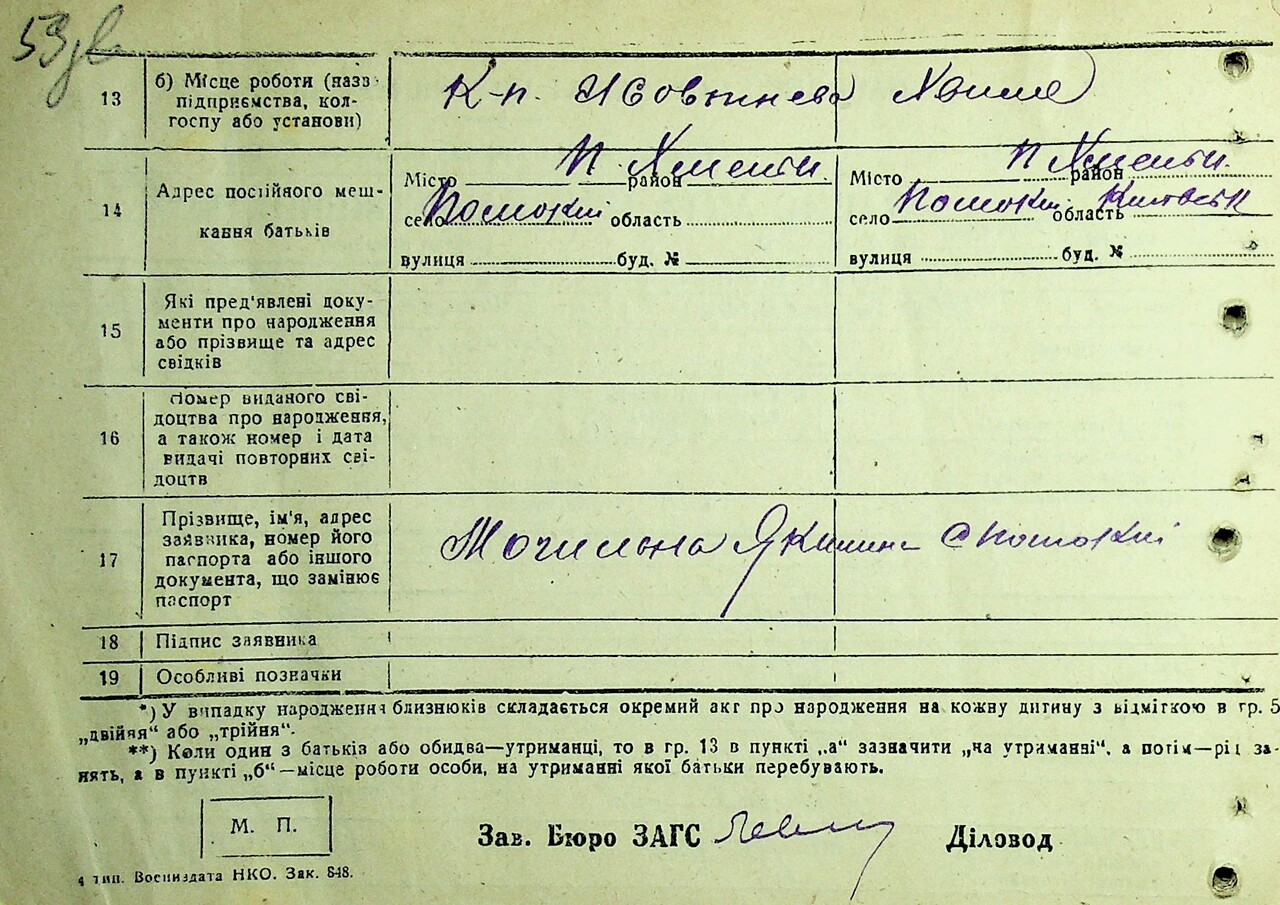 53 зв
13 б) Місце роботи (назв
підприємства, кол-
госпу або установи) К-п. Жовтнева Хвиля
14 Адрес постійного меш-
кання батьків
Місто район П. Хмельн.
село Потокі область
вулиця буд. №
Місто район П Хмельн.
село Потокі область Київськ
вулиця буд. №
15 Які пред'явлені доку-
менти про народження
або прізвище та адрес
свідків
16 Номер виданого сві-
доцтва про народження,
а також номер і дата
видачі повторних сві-
доцтв
17 Прізвище, ім'я, адрес
заявника, номер його
паспорта або іншого
документа, що замінює
паспорт
Якилина с Потокі
18 Підпис заявника
19 Особливі позначки
*) У випадку народження близнюків складається окремий акт про народження на кожну дитину з відміткою в гр. 5
„двійня“ або „трійня“.
**) Коли один з батьків або обидва—утриманці, то в гр. 13 в пункті „а“ зазначити „на утриманні“, а потім—рід за-
нять, а в пункті „б“—місце роботи особи, на утриманні якої батьки перебувають.
М. П.
Зав. Бюро ЗАГС Діловод
4 тип. Воениздата НКО. Зак. 848.